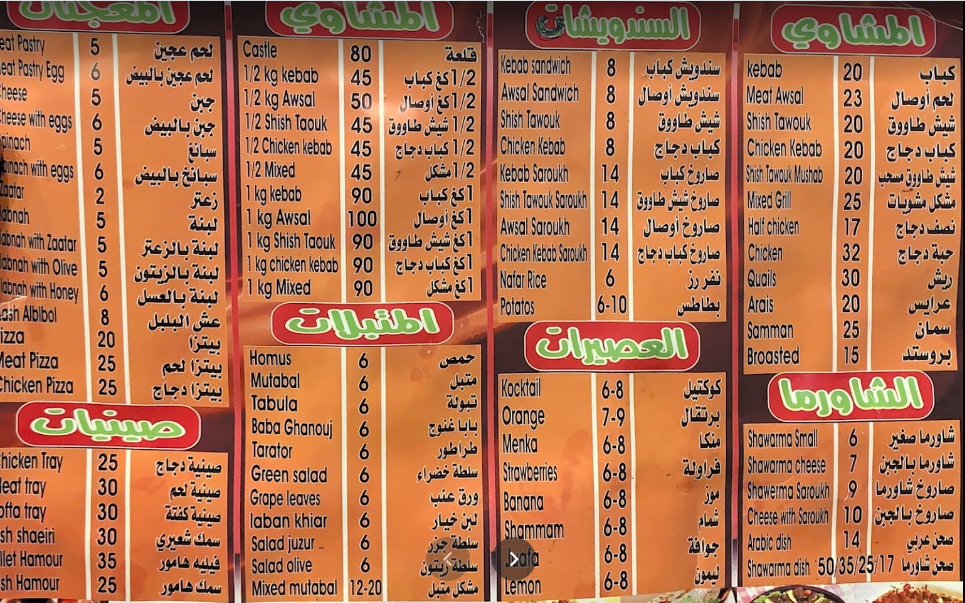 المعجنات
eat Pastry 5 لحم عجين
eat Pastry Egg 6 لحم عجين بالبيض
heese 5 جبن
heese with eggs 6 جبن بالبيض
pinach 5 سبانغ
nach with eggs 6 سبانخ بالبيض
aatar 2 زعتر
abnah 5 لبنة
abnah with Zaatar 5 لبنة بالزعتر
abnah with Olive 5 لبنة بالزيتون
abnah with Honey 6 لبنة بالعسل
ash Albibol 8 عش البلبل
izza 20 بيتزا
Meat Pizza 25 بيتزا لحم
Chicken Pizza 25 بيتزا دجاج
صينيات
hicken Tray 25 صينية دجاج
eat tray 30 صينية لحم
ofta tray 30 صينية كفتة
sh shaeiri 30 سمك شعيري
llet Hamour 35 فيليه هامور
sh Hamour 25 سمك هامور
المشاوي
Castle 80 قلعة
1/2 kg kebab 45 1/2 كغ كباب
1/2 kg Awsal 50 1/2 كغ أوصال
1/2 Shish Taouk 45 1/2 شيش طاووق
1/2 Chicken kebab 45 1/2 كباب دجاج
1/2 Mixed 45 1/2 مشكل
1 kg kebab 90 1كغ كباب
1 kg Awsal 100 1كغ أوصال
1 kg Shish Taouk 90 1كغ شيش طاووق
1 kg chicken kebab 90 1كغ كباب دجاج
1 kg Mixed 90 1كغ مشكل
المتبلات
Homus 6 حمص
Mutabal 6 متبل
Tabula 6 تبولة
Baba Ghanouj 6 بابا غنوج
Tarator 6 طراطور
Green salad 6 سلطة خضراء
Grape leaves 6 ورق عنب
laban khiar 6 لبن خيار
Salad juzur 6 سلطة جزر
Salad olive 6 سلطة زيتون
Mixed mutabal 12-20 مشكل متبل
السندويشات
Kebab sandwich 8 سندويش كباب
Awsal Sandwich 8 سندويش أوصال
Shish Tawouk 8 شيش طاووق
Chicken Kebab 8 كباب دجاج
Kebab Saroukh 14 صاروخ كباب
Shish Tawouk Saroukh 14 صاروخ شيش طاووق
Awsal Saroukh 14 صاروخ أوصال
Chicken Kebab Saroukh 14 صاروخ كباب دجاج
Nafar Rice 6 نفر رز
Potatos 6-10 بطاطس
العصيرات
Kocktail 6-8 كوكتيل
Orange 7-9 برتقال
Menka 6-8 منكا
Strawberries 6-8 فراولة
Banana 6-8 موز
Shammam 6-8 شمام
6-8 جوافة
Lemon 6-8 ليمون
المشاوي
kebab 20 كباب
Meat Awsal 23 لحم أوصال
Shish Tawouk 20 شيش طاووق
Chicken Kebab 20 كباب دجاج
Shish Tawouk Mushab 20 شيش طاووق مسحب
Mixed Grill 25 مشكل مشويات
Half chicken 17 نصف دجاج
Chicken 32 حبة دجاج
Quails 30 ريش
Arais 20 عرايس
Samman 25 سمان
Broasted 15 بروستد
الشاورما
Shawarma Small 6 شاورما صغير
Shawarma cheese 7 شاورما بالجبن
Shawerma Saroukh 9 صاروخ شاورما
Cheese with Saroukh 10 صاروخ بالجبن
Arabic dish 14 صحن عربي
Shawarma dish 50/35/25/17 صحن شاورما